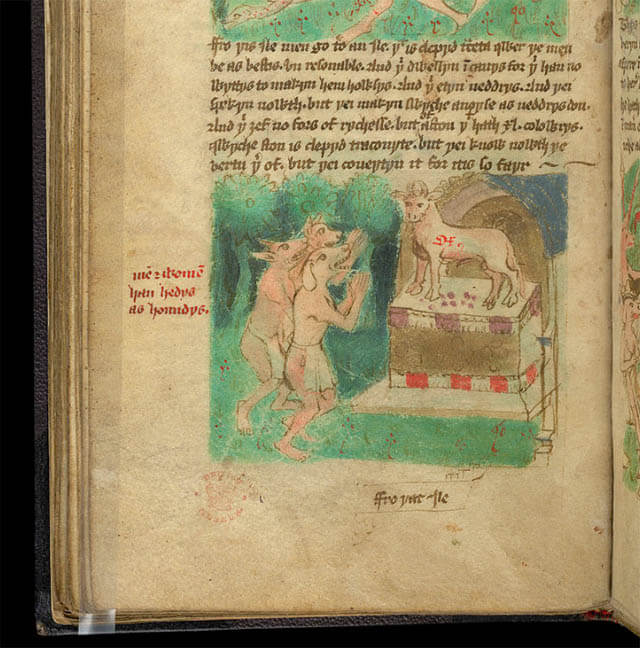 ffro yis yle men go to an yle. yt is clepyd qwer ye men
be as bestis. vn resonable. And yei dwellyn in cauys for yei han no
wyttys to makyn hem howsys. And yei etyn neddrys. And yei
spekyn nowth. but yei makyn swyche anoyse as neddrys don.
And yei zef no fors of rychesse. but of a ston yt hath xl. colowrys.
qwyche ston is clepyd traconyte. but yei know nowth ye
vertu yer of. but yei coueytyn it for it is so fayr
men & women
han hedys
as houndys.
ffro yat yle